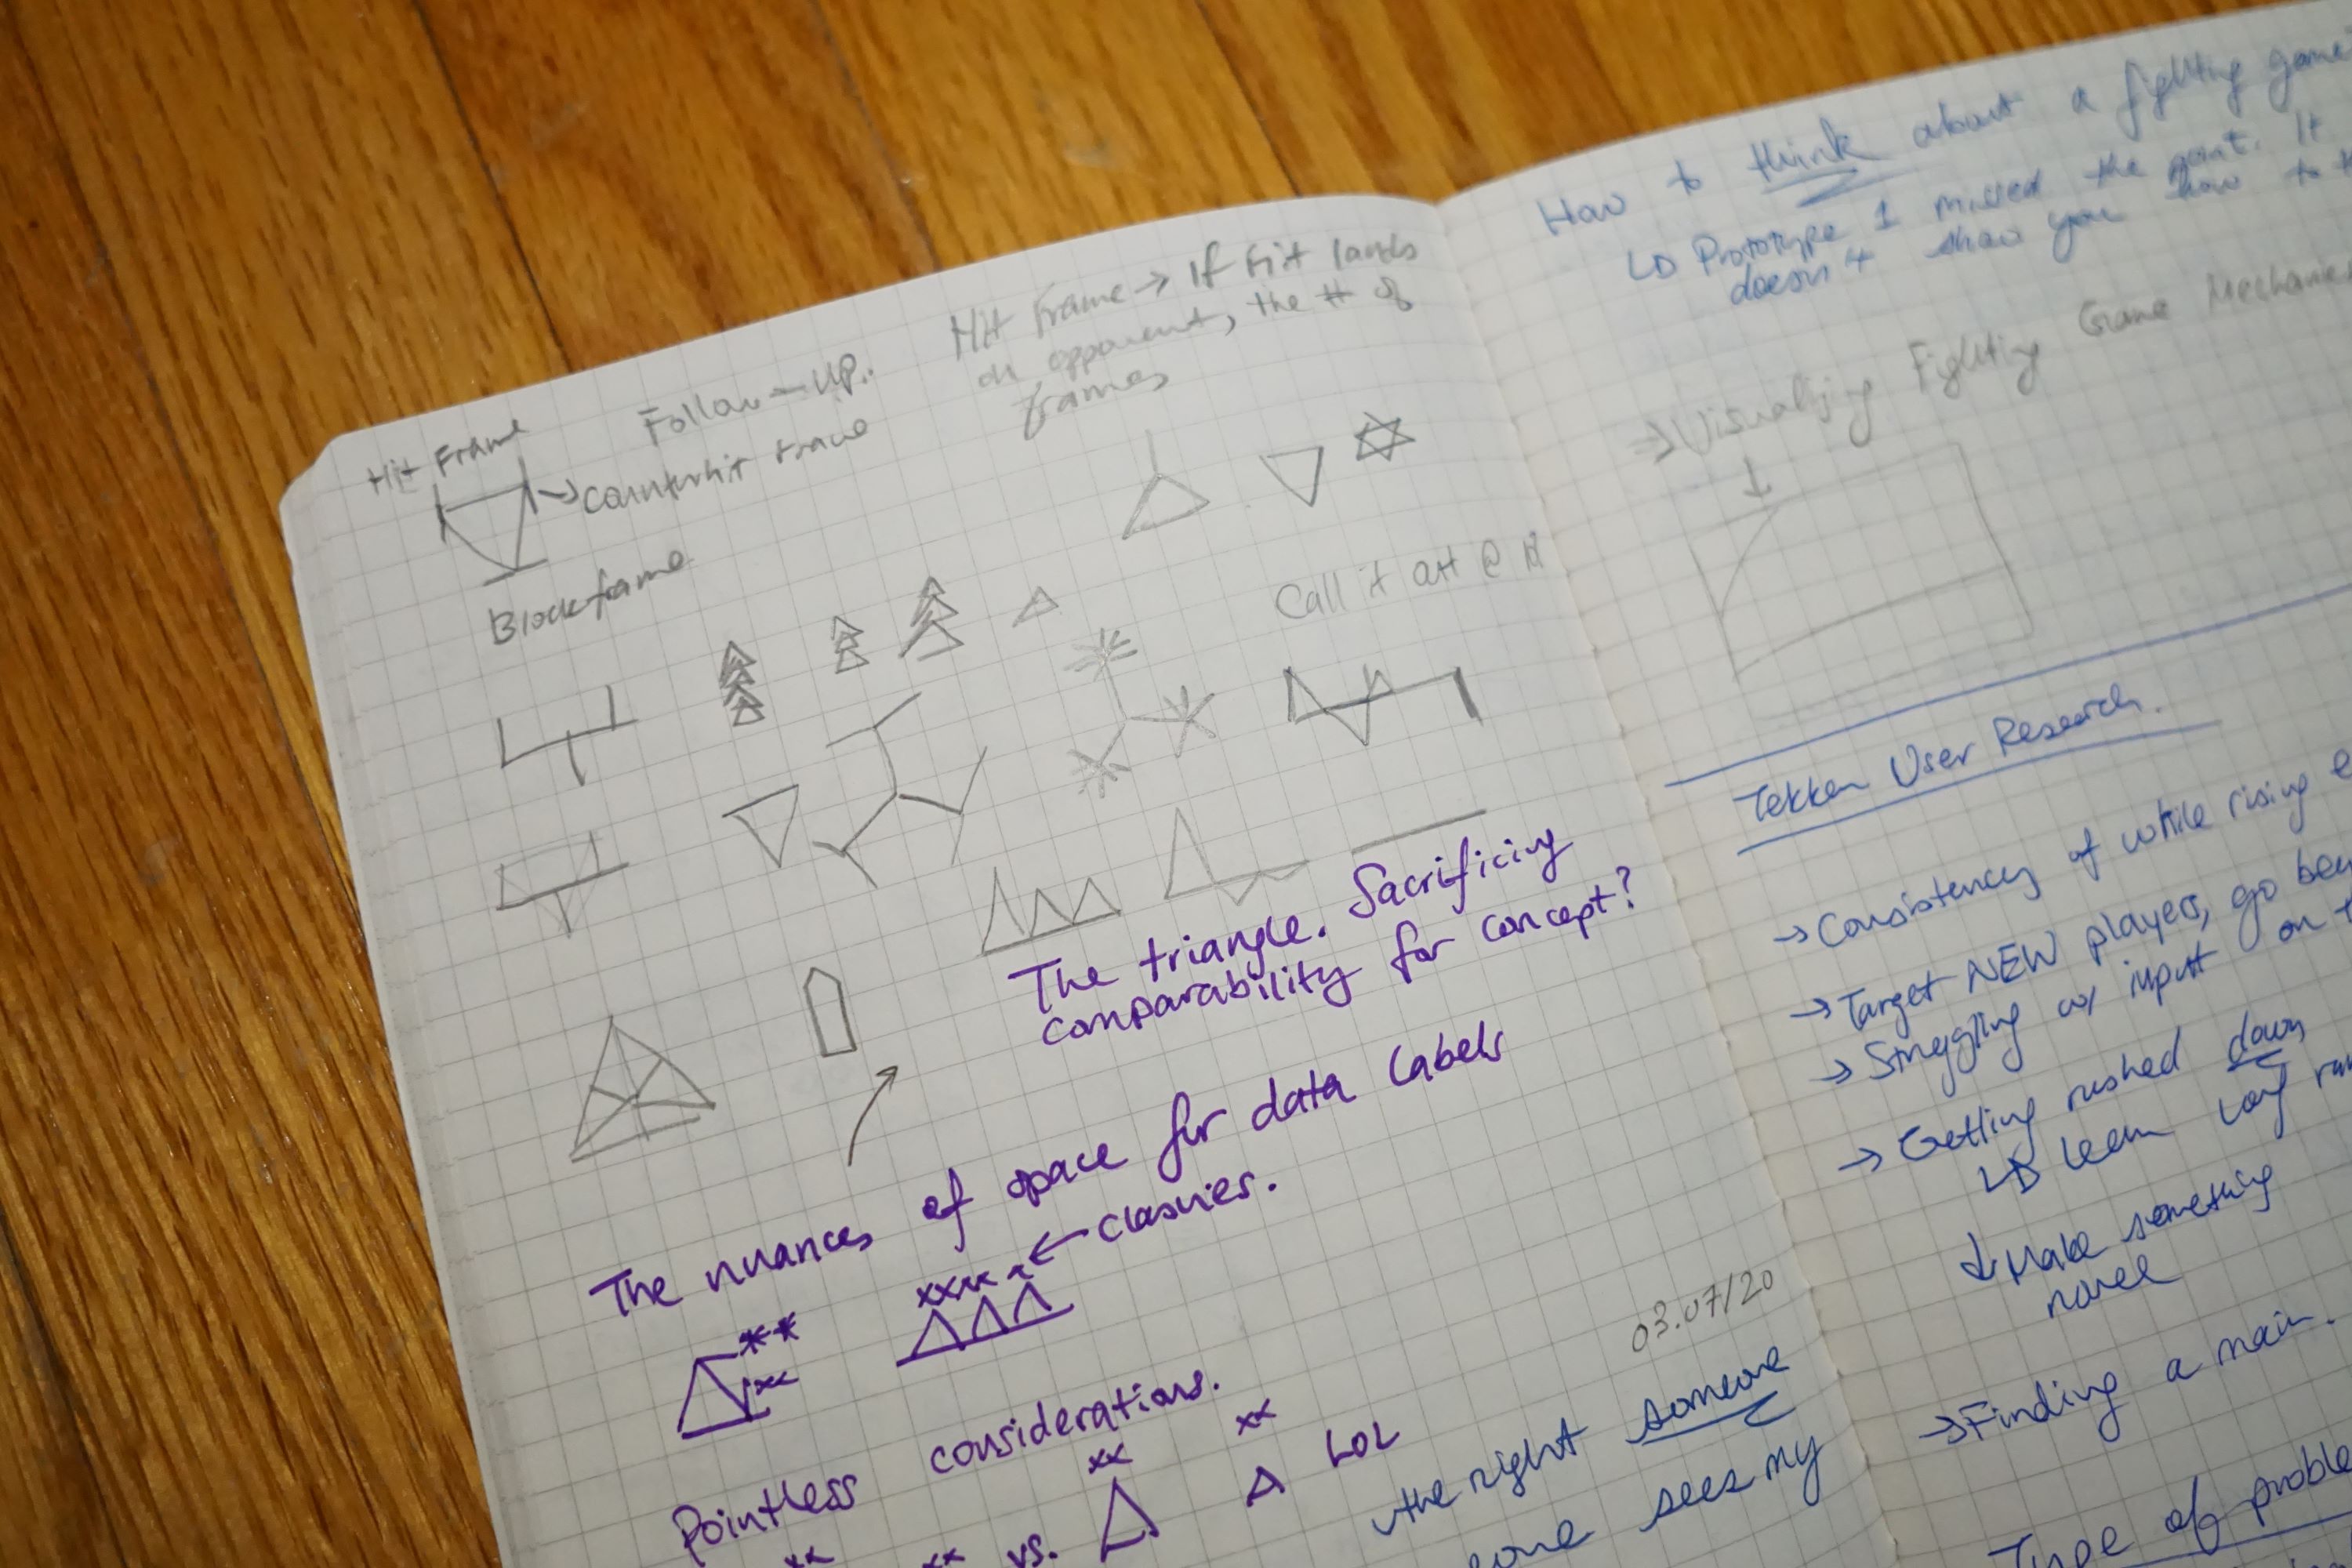 Hit Frame
Follow-UP.
Hit Frame → If hit lands
on opponent, the # of
frames
→ Counterhit frame
Block frame
Call it art @
The triangle. Sacrificing
comparability for concept?
The nuances of space for data labels
← classier.
**
xx
xxxx
Pointless considerations.
xx
xx
LOL
xx
xx vs.
03.07/20
the right someone
sees my
How to think about a fighting game
↳ Prototype 1 missed the point. It
doesn't show you how to
⇒ Visualizing Fighting Game Mechanics
Tekken User Research.
→ Consistency of while rising
→ Target NEW players, go
→ Struggling w/ input on
→ Getting rushed down
↳ learn
↓ Make something
novel
→ Finding a main.
Type of proble